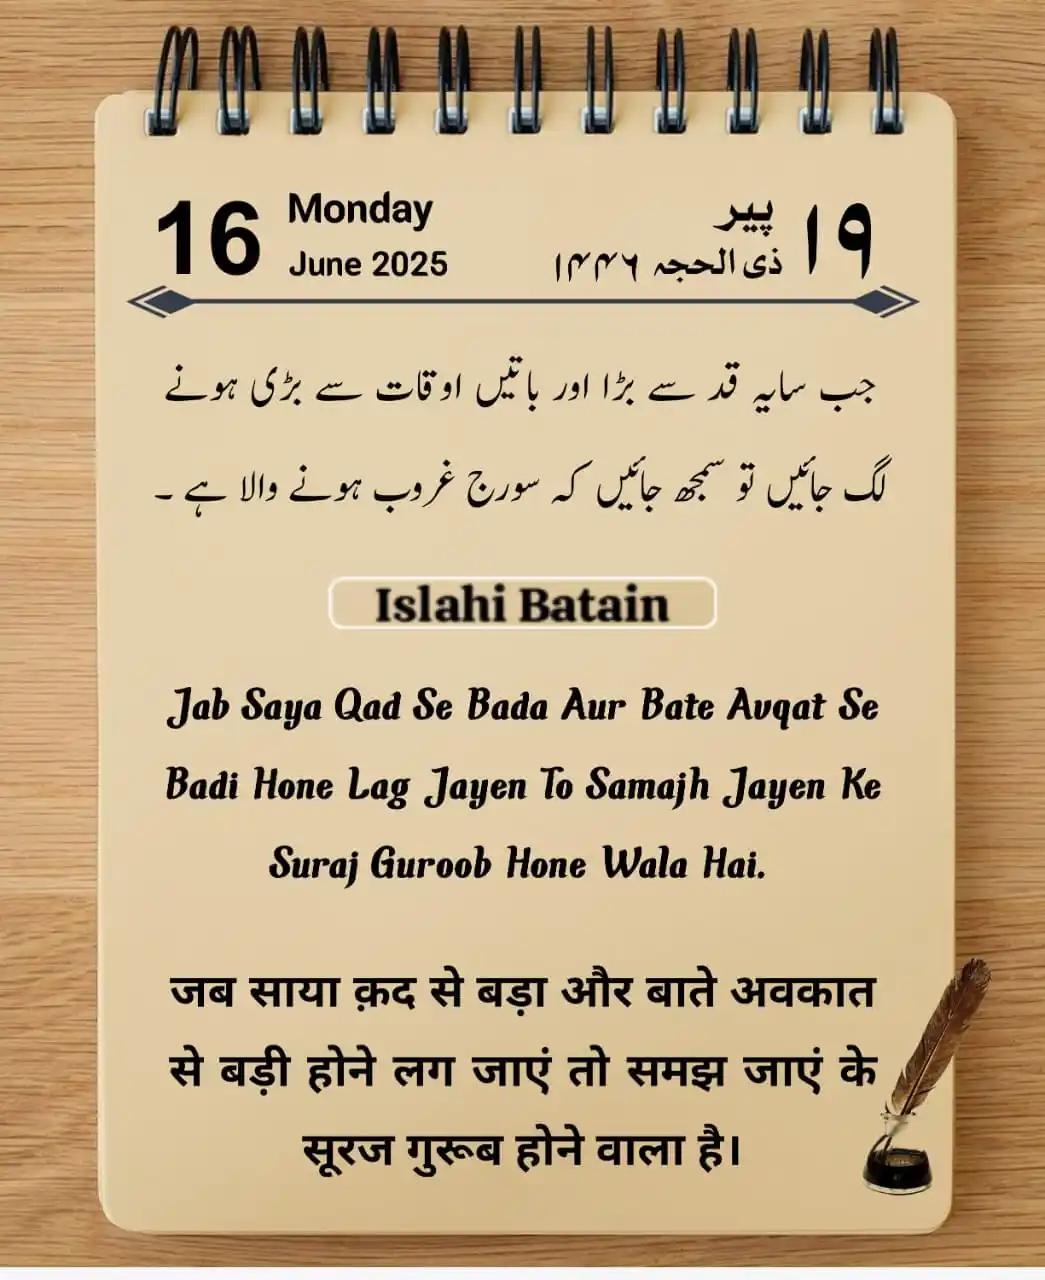 16 Monday پیر ۱۹
June 2025 ذی الحجہ ۱۴۴۶
جب سایہ قد سے بڑا اور باتیں اوقات سے بڑی ہونے
لگ جائیں تو سمجھ جائیں کہ سورج غروب ہونے والا ہے ۔
Islahi Batain
Jab Saya Qad Se Bada Aur Bate Avqat Se
Badi Hone Lag Jayen To Samajh Jayen Ke
Suraj Guroob Hone Wala Hai.
जब साया क़द से बड़ा और बाते अवकात
से बड़ी होने लग जाएं तो समझ जाएं के
सूरज गुरूब होने वाला है।